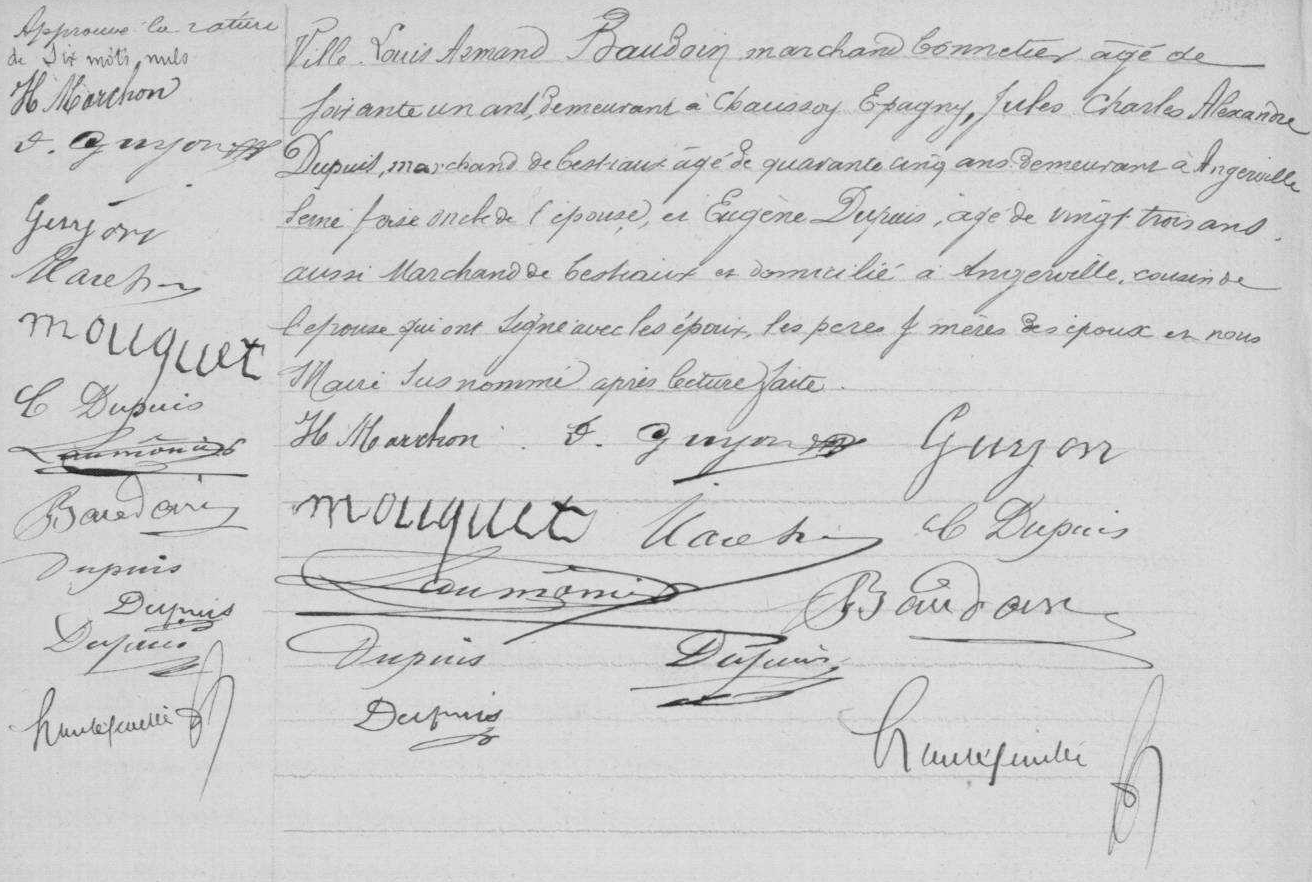 Approuvé la rature
de Dix mots nuls
H Marchon
A. Guyon
Guyon
Maret
mouquet
C Dupuis
Laumônier
Baudoin
Dupuis
Dupuis
Dupuis
hautefeuille
Ville. Louis Armand Baudoin marchand bonnetier âgé de
soixante un ans, demeurant à Chaussoy Epagny, Jules Charles Alexandre
Dupuis, marchand de bestiaux âgé de quarante cinq ans demeurant à Angerville
Seine oncle de l'épouse, et Eugène Dupuis, âgé de vingt trois ans,
aussi Marchand de bestiaux et domicilié à Angerville, cousin de
l'epouse qui ont signé avec les époux, les peres & mères des époux et nous
Maire susnommé après lecture faite.
H Marchon A. Guyon Guyon
mouquet Maret C Dupuis
Laumônier Baudoin
Dupuis Dupuis
Dupuis
hautefeuille